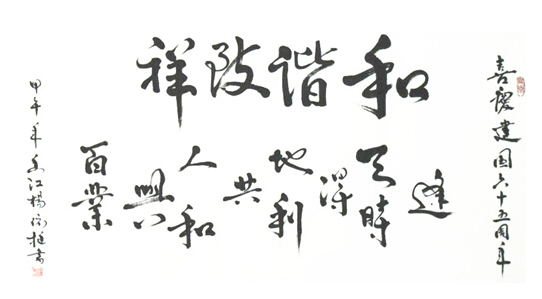 喜慶建国六十五周年
和谐致祥
逢天時得地利共人和興百業
甲午年江楊書